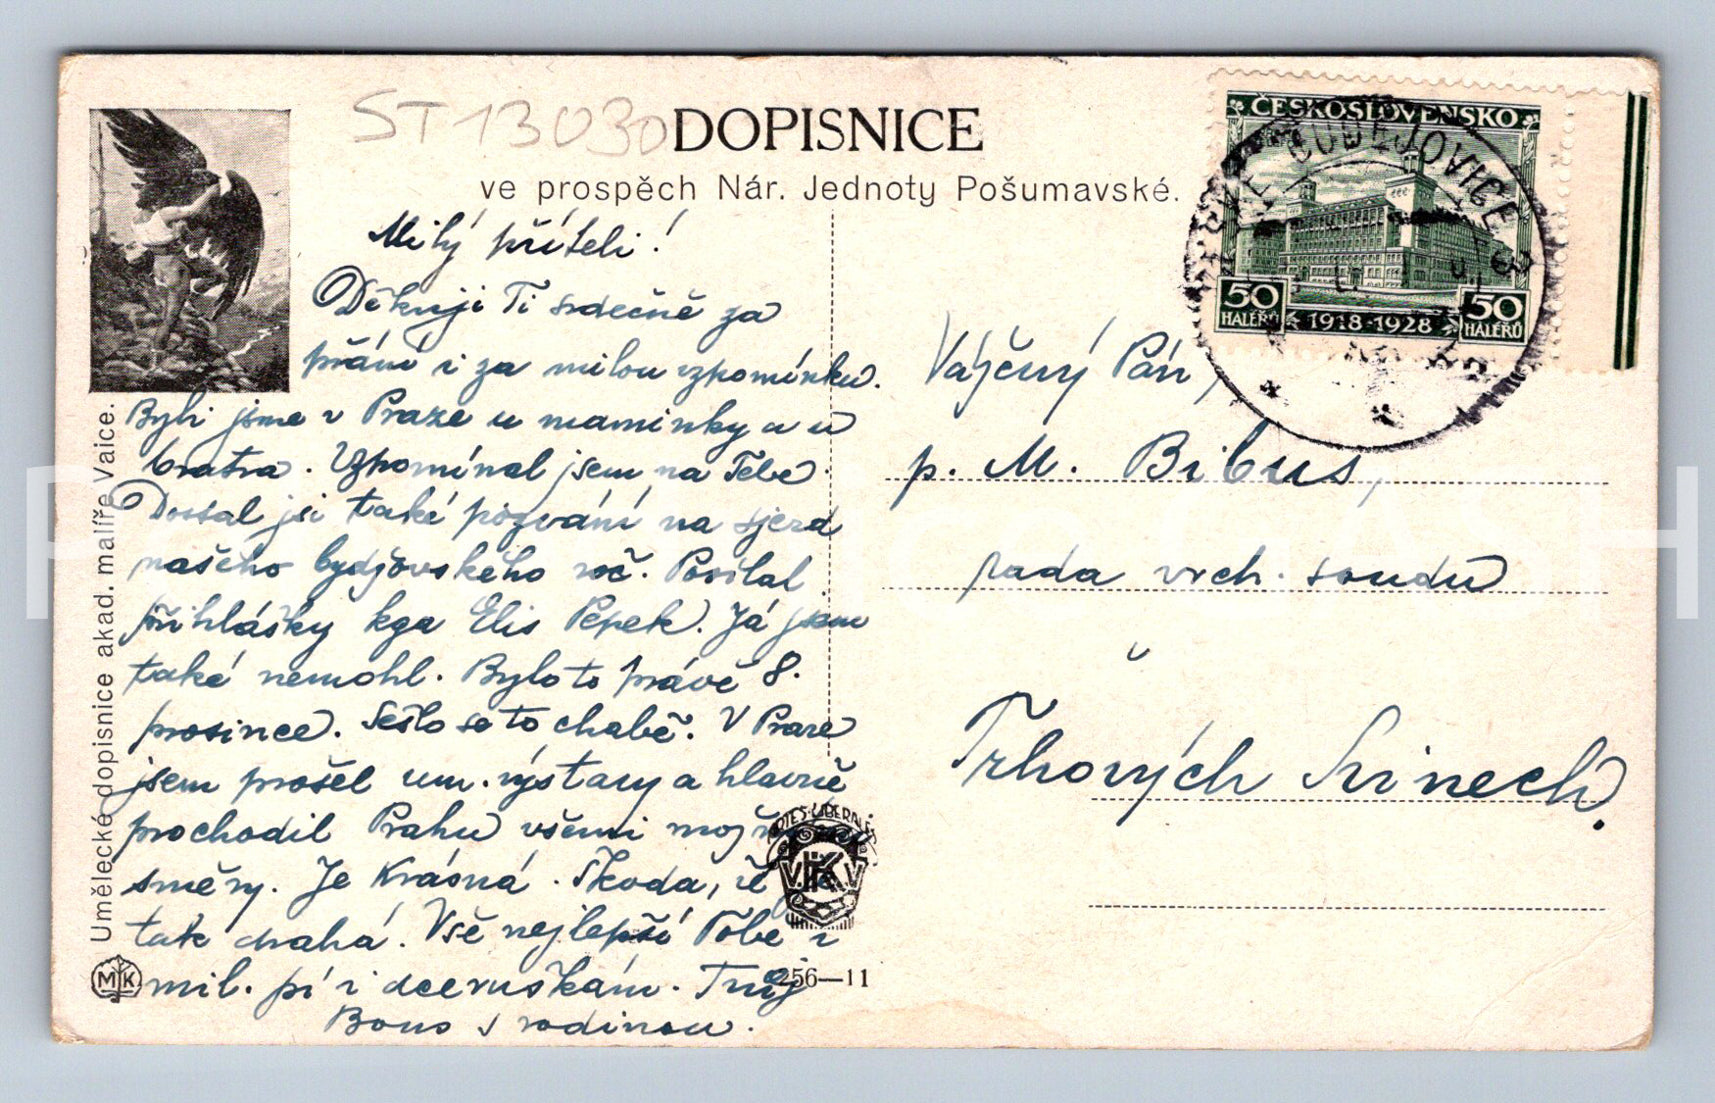 ST 13030
DOPISNICE
ve prospěch Nár. Jednoty Pošumavské.
Milý příteli!
Děkuji Ti srdečně za
přání i za milou vzpomínku.
Byli jsme v Praze u maminky a u
bratra. Vzpomínal jsem na Tebe.
Dostal jsi také pozvání na sjezd
našeho bydžovského roč. Posílal
přihlášky kga Elis Pepek. Já jsem
také nemohl. Bylo to právě 8.
prosince. Sešlo se to chabě. V Praze
jsem prošel um. výstavy a hlavně
prochodil Prahu všemi možnými
směry. Je krásná. Škoda, že je
tak drahá. Vše nejlepší Tobě i
mil. pí i dceruškám. Tvůj
s rodinou.
Umělecké dopisnice akad. malíře Vaice.
MK
ARTES LIBERALES
V.K.K.V
256—11
ČESKOSLOVENSKO
50 HALÉŘŮ
1918-1928
50 HALÉŘŮ
BUDĚJOVICE 3
Vážený Pán,
p. M. Bibus,
rada vrch. soudu
v
Trhových Svinech.